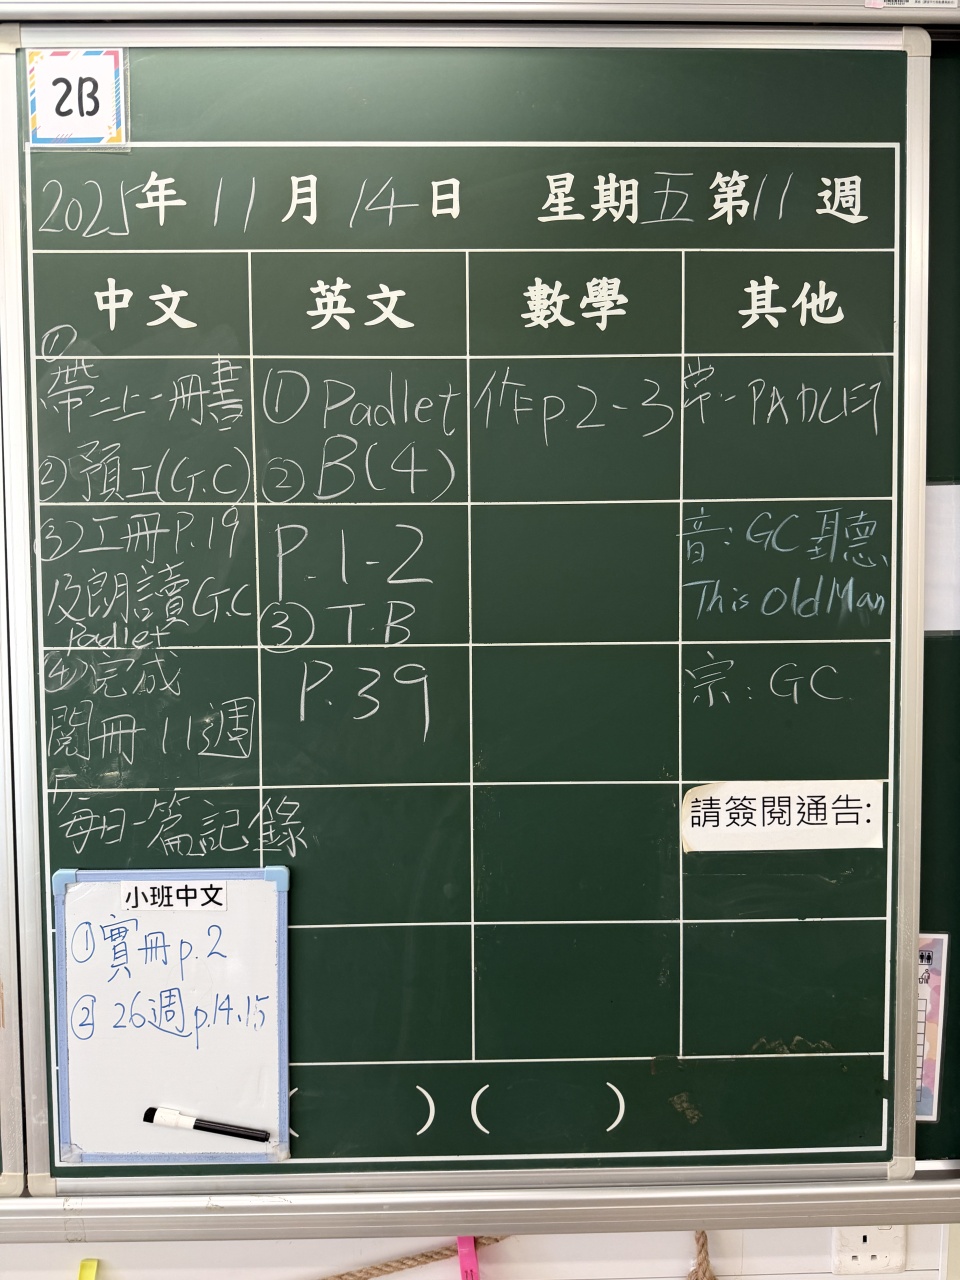 2B
2025年11月14日 星期五第11週
中文 英文 數學 其他
①
帶二上一冊書
②預工(G.C)
③工冊P.19
及朗讀G.C
Padlet
④完成
閱冊11週
每日一篇記錄
①Padlet
②B(4)
P.1-2
③T.B
P.39
作p2-3
常-PADLET
音:GC聽
This Old Man
宗:GC
請簽閱通告:
小班中文
①實冊p.2
②26週p.14.15
( ) ( )